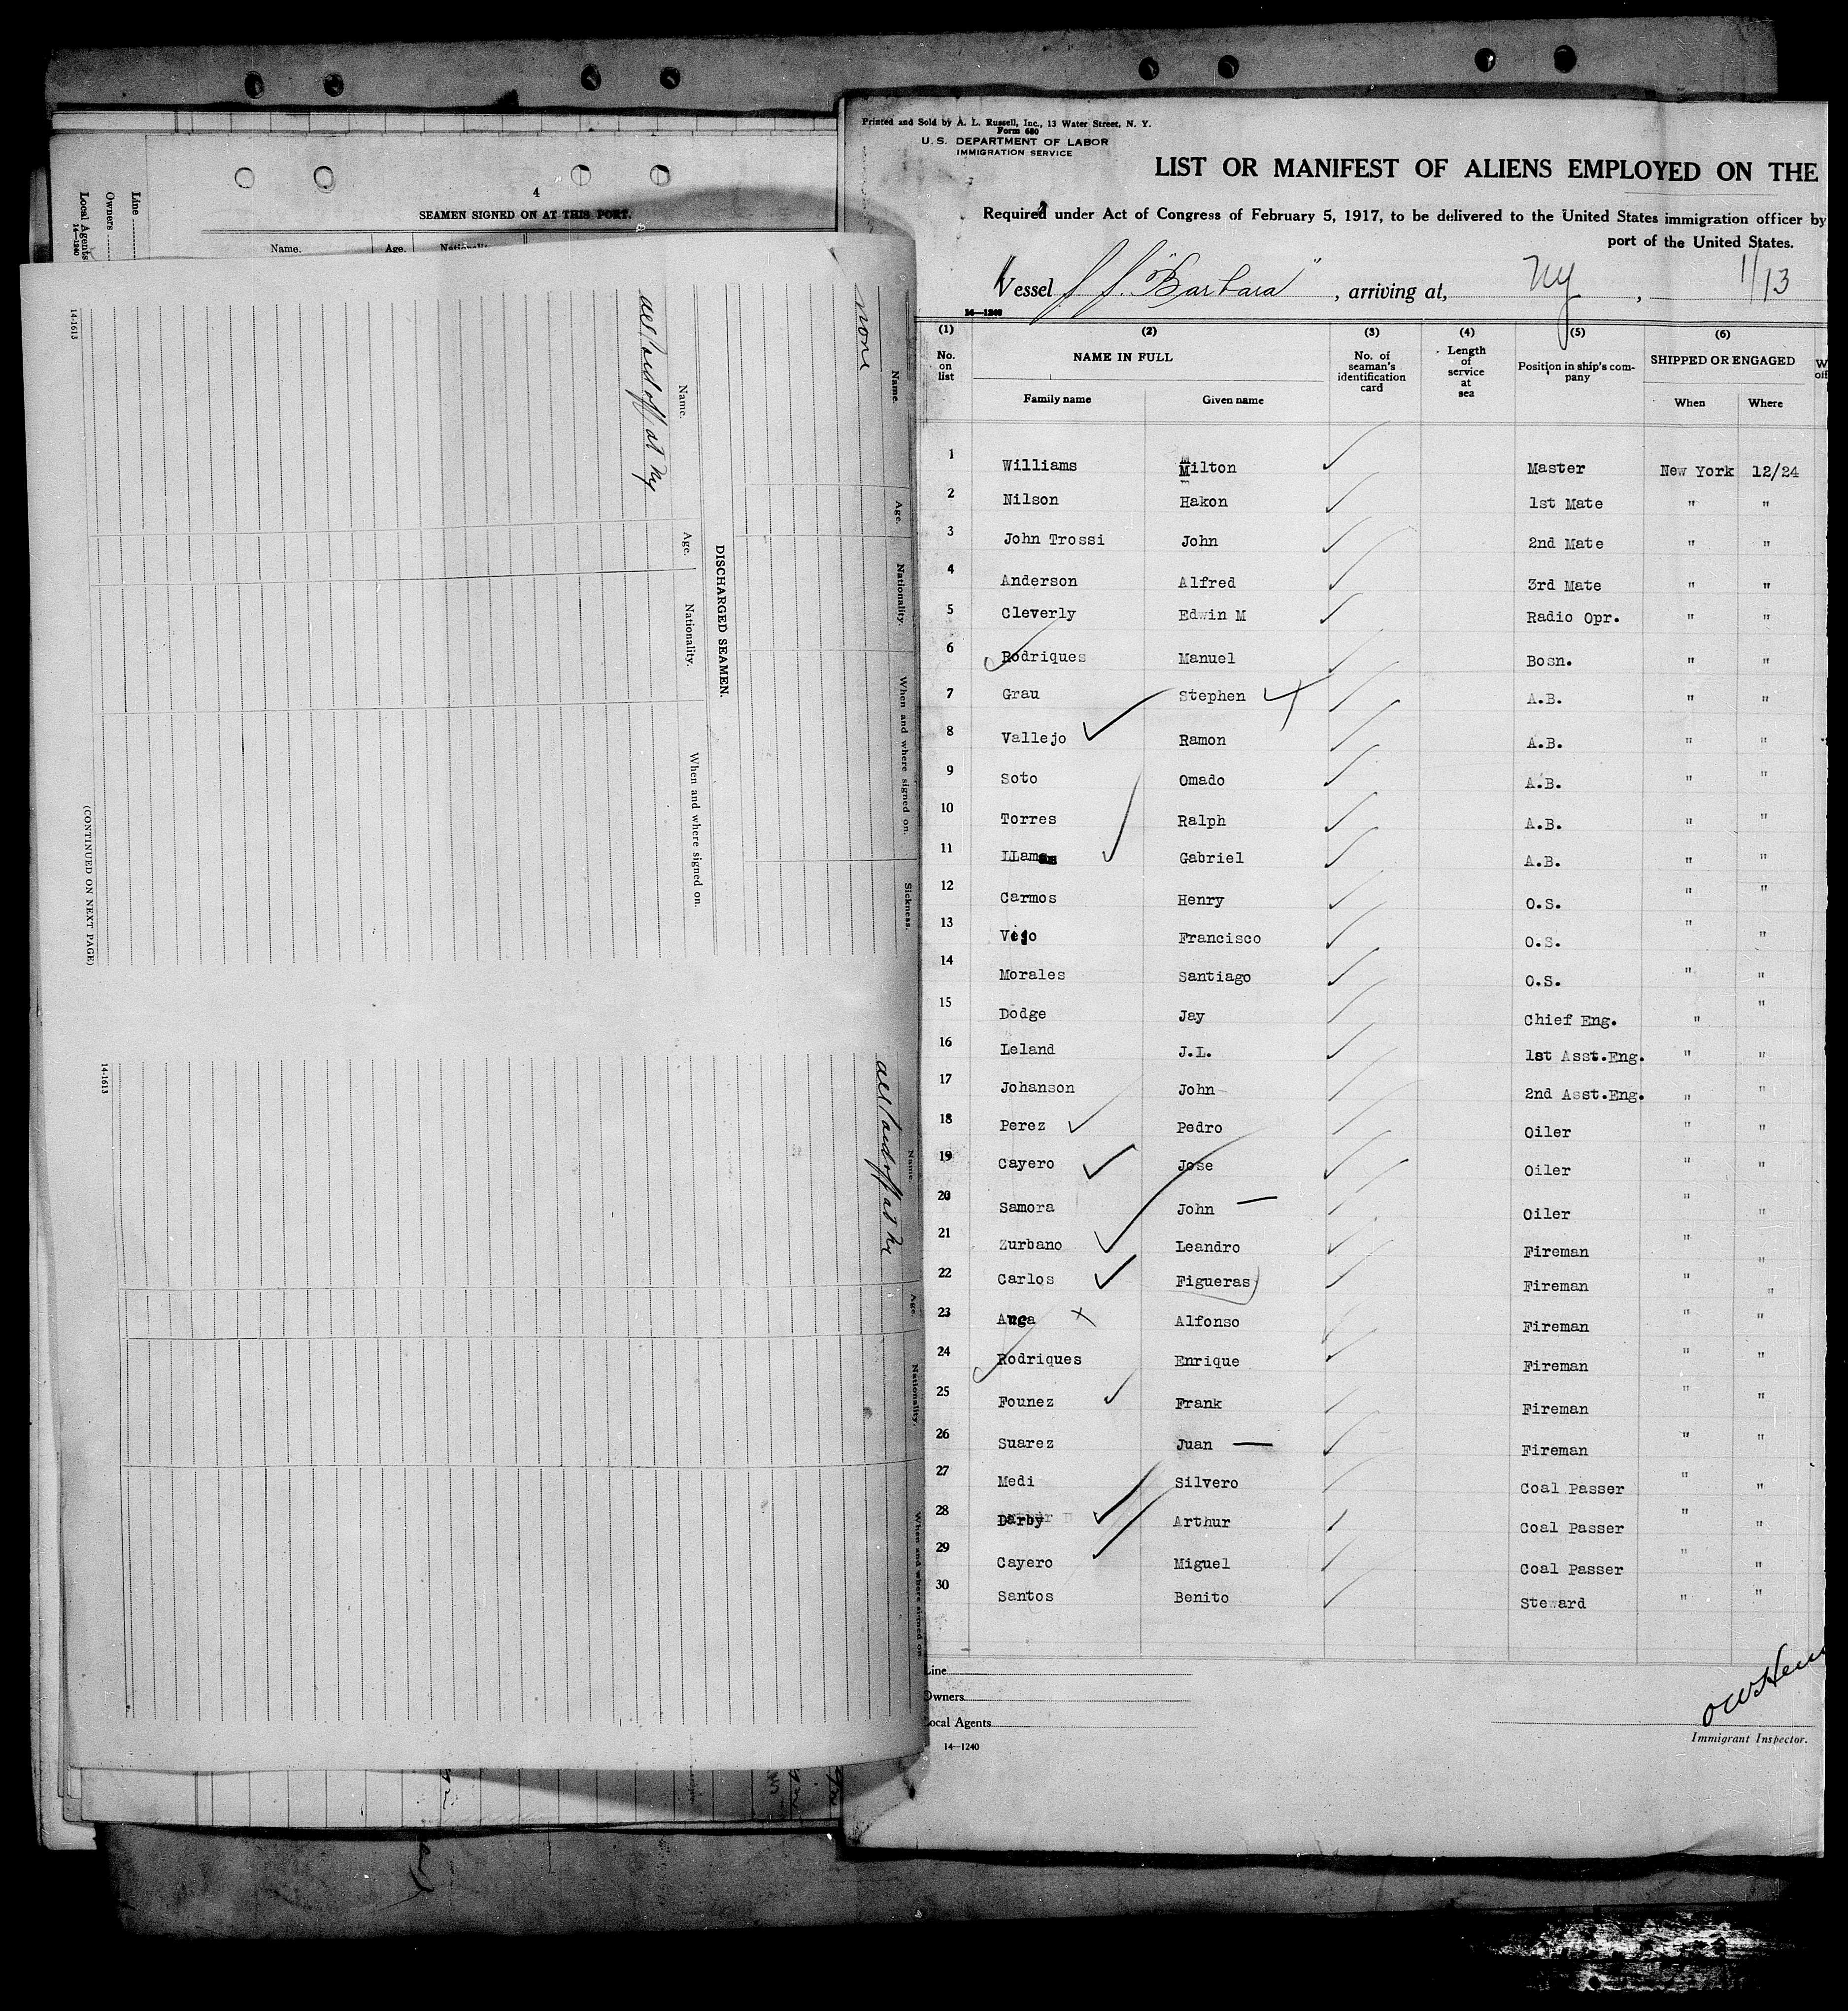 4
SEAMEN SIGNED ON AT THIS PORT.
Name. Age. Nationality
Line
Owners
Local Agents
14—1240
Name. Age. Nationality. When and where signed on. Sickness.
none
DISCHARGED SEAMEN.
Name. Age. Nationality. When and where signed on.
all paid off at Ny
14-1613
(CONTINUED ON NEXT PAGE)
Name. Age. Nationality. When and where signed on.
all paid off at Ny
14-1613
Printed and Sold by A. L. Russell, Inc., 13 Water Street, N. Y.
Form 680
U. S. DEPARTMENT OF LABOR
IMMIGRATION SERVICE
LIST OR MANIFEST OF ALIENS EMPLOYED ON THE
Required under Act of Congress of February 5, 1917, to be delivered to the United States immigration officer by
port of the United States.
Vessel S S. "Barbara", arriving at, Ny, 1/13
14—1240
(1) (2) (3) (4) (5) (6)
No. on list NAME IN FULL No. of seaman's identification card Length of service at sea Position in ship's company SHIPPED OR ENGAGED
Family name Given name When Where
1 Williams Milton Master New York 12/24
2 Nilson Hakon 1st Mate " "
3 John Trossi John 2nd Mate " "
4 Anderson Alfred 3rd Mate " "
5 Cleverly Edwin M Radio Opr. " "
6 Rodriques Manuel Bosn. " "
7 Grau Stephen A.B. " "
8 Vallejo Ramon A.B. " "
9 Soto Omado A.B. " "
10 Torres Ralph A.B. " "
11 LLamas Gabriel A.B. " "
12 Carmos Henry O.S. " "
13 Francisco O.S. " "
14 Morales Santiago O.S. " "
15 Dodge Jay Chief Eng. " "
16 Leland J.L. 1st Asst.Eng. " "
17 Johanson John 2nd Asst.Eng. " "
18 Perez Pedro Oiler " "
19 Cayero Jose Oiler " "
20 Samora John Oiler " "
21 Zurbano Leandro Fireman " "
22 Carlos Figueras Fireman " "
23 Alfonso Fireman " "
24 Rodriques Enrique Fireman " "
25 Founez Frank Fireman " "
26 Suarez Juan Fireman " "
27 Medi Silvero Coal Passer " "
28 Darby Arthur Coal Passer " "
29 Cayero Miguel Coal Passer " "
30 Santos Benito Steward " "
Line
Owners
Local Agents
14—1240
Immigrant Inspector.